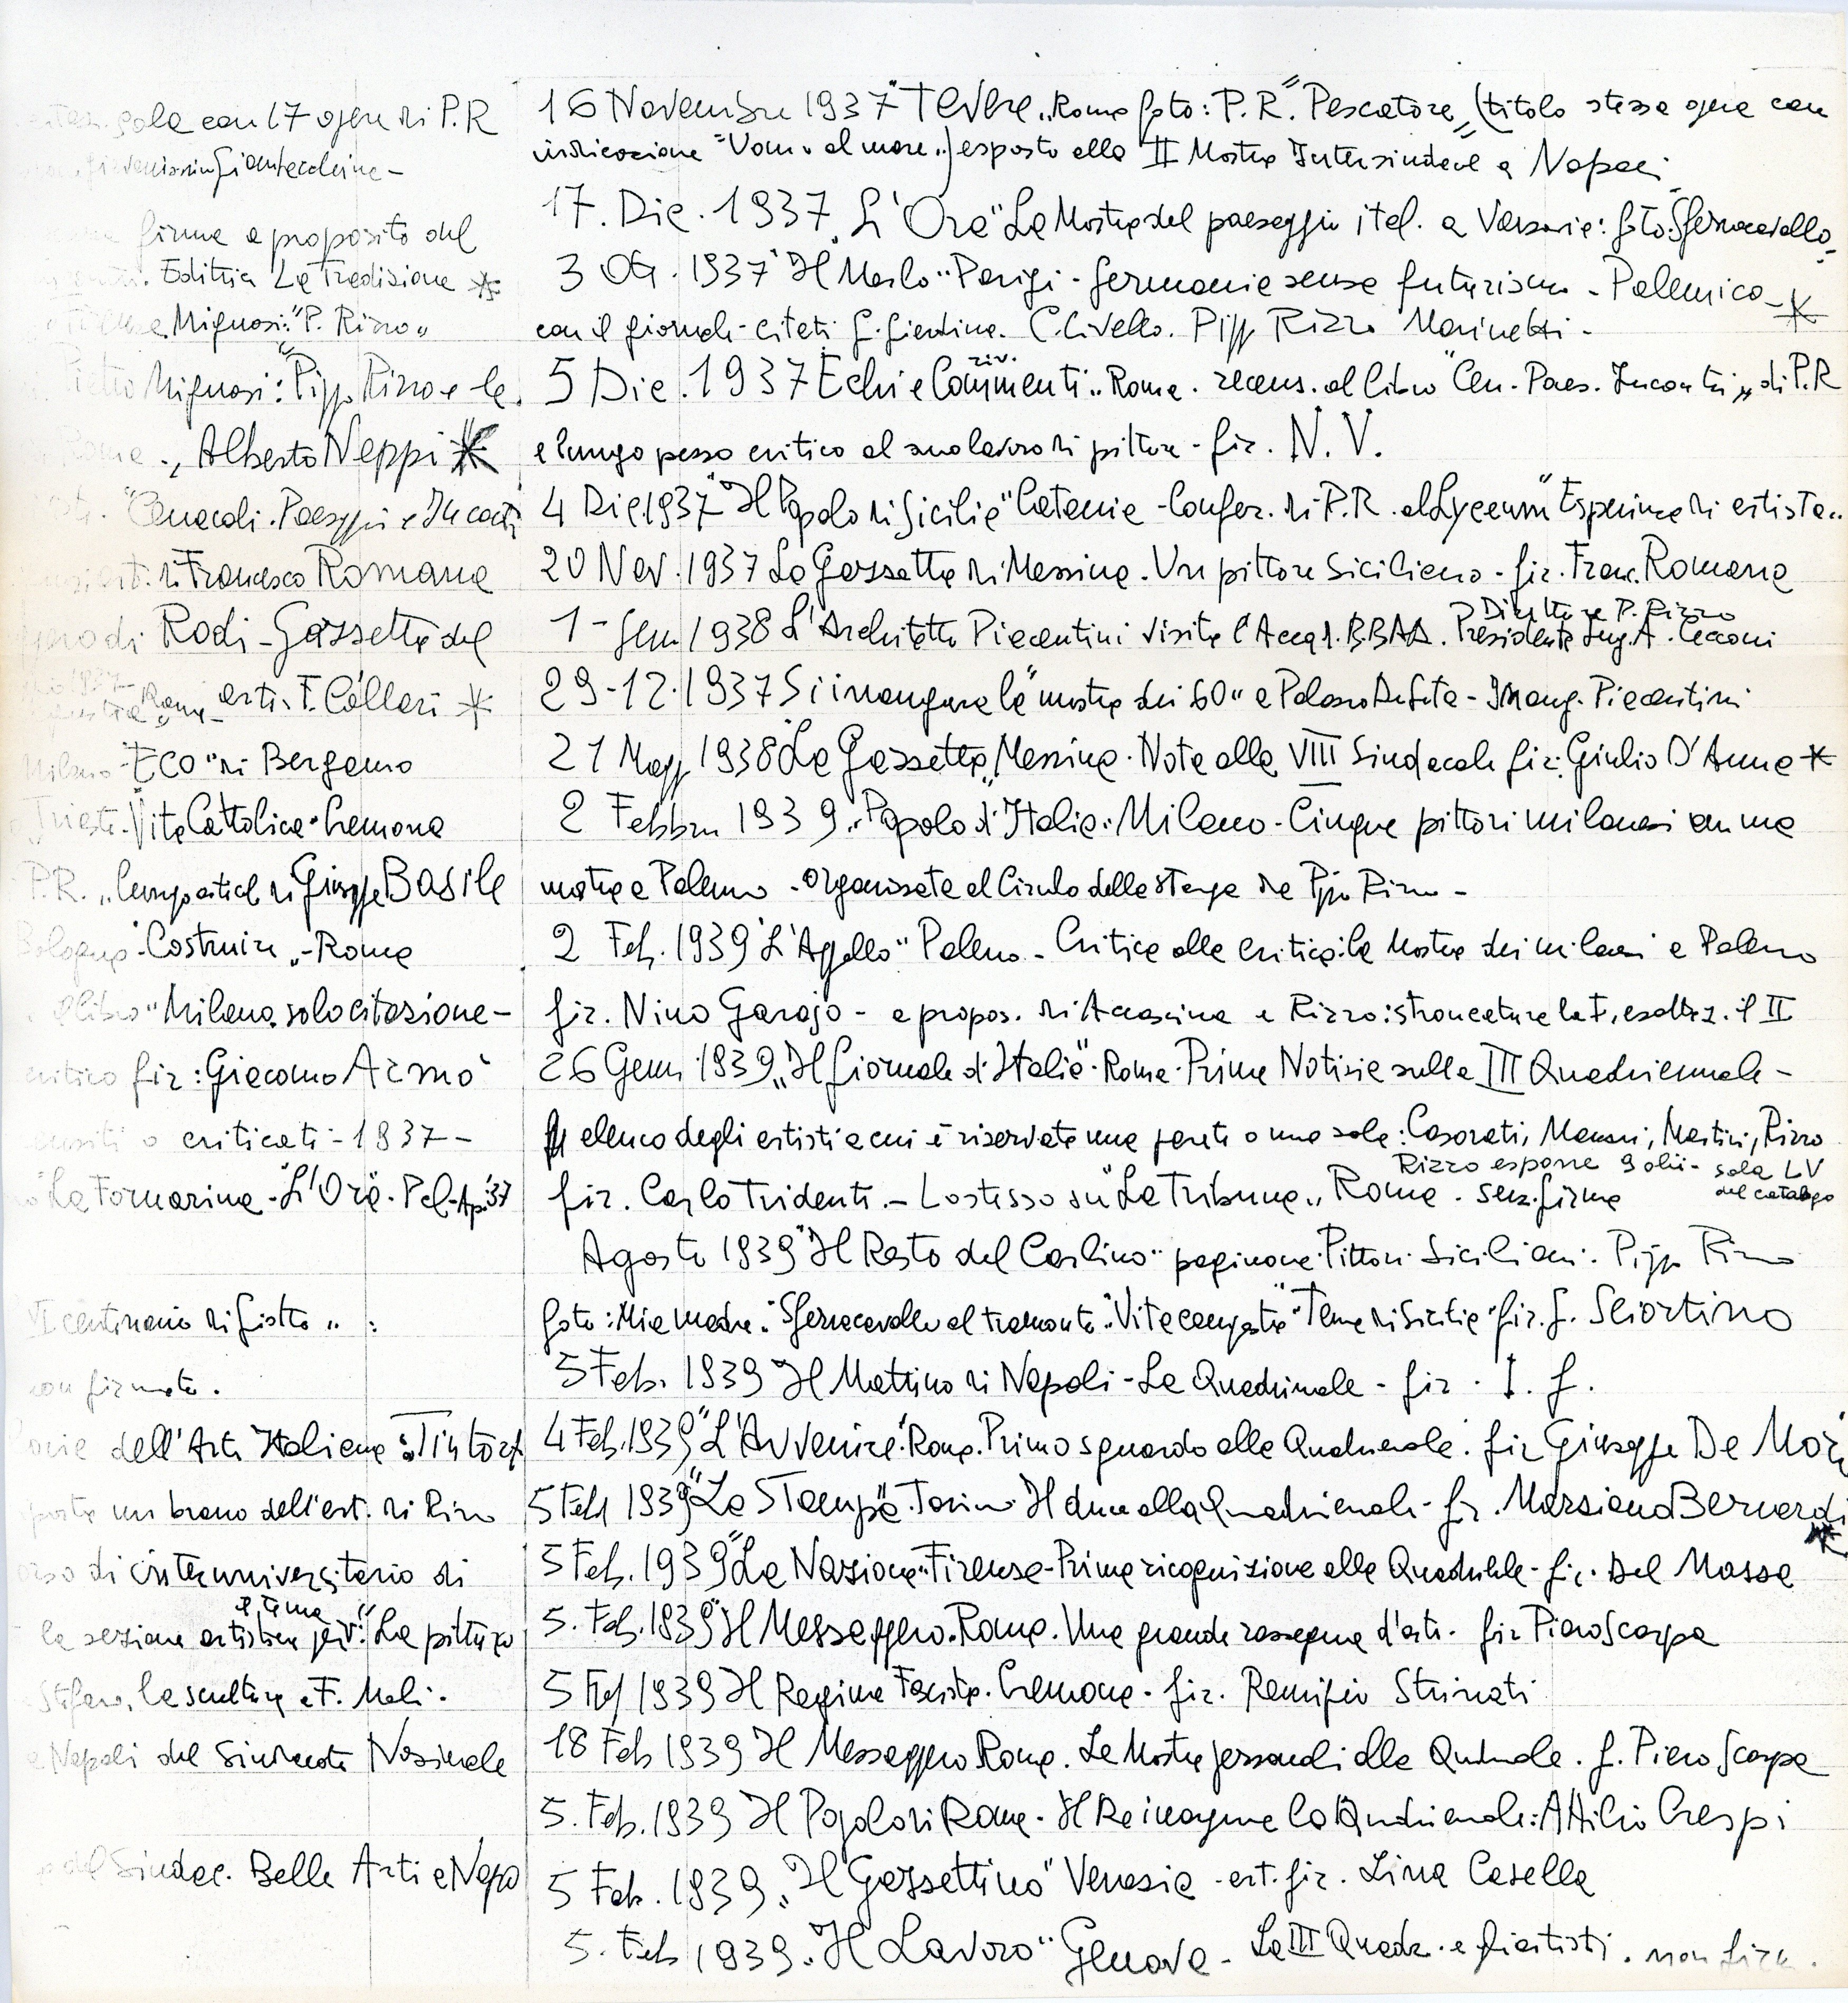 sola con 17 opere di P.R
firma a proposito del
Editria La Tradizione *
Mignosi: "P. Rizzo"
Pietro Mignosi: "Pippo Rizzo e la
Roma - Alberto Neppi *
"Cenacoli. Paesaggi e Incontri
di Francesco Romana
di Rodi - Gazzetta del
Roma - arti. F. Calleri *
Milano - "Eco" di Bergamo
Trieste - Vita Cattolica - Cremona
P.R. "lungo articol di Giuseppe Basile
Bologna - "Costruire" - Roma
libro "Milano, solo citazione -
critico fir: Giacomo Armò
o criticati - 1937 -
"La Fornarina - "L'Ora" - Pal - Ap. '37
VI centenario di Giotto" :
non firmato.
dell'Arte Italiana: Tintor
un brano dell'art. di Rizzo
di interuniversitario di
il tema
la sezione artistica "La pittura
la scultura a F. Meli.
a Napoli del Sindacato Nazionale
del Sindac. Belle Arti a Napo
16 Novembre 1937 "Tevere" Roma foto: P.R. "Pescatore" (titolo stessa opera con
indicazione "Uomo al mare") esposto alla II Mostra Intersindacal a Napoli.
17. Dic. 1937. L'Ora "La Mostra del paesaggio ital. a Varsavia: foto: Sferracavallo
3 Ott. 1937 "Il Merlo" Parigi - Germania senza futurismo - Polemica - *
con il giornale - citati G. Giardina. C. Civello. Pipp Rizzo Marinetti -
riv.
5 Dic. 1937 Echi e Commenti" Roma. recens. al libro "Cen. Paes. Incontri" di P.R
e lungo pezzo critico al suo lavoro di pittore - fir. N.V.
4 Dic. 1937 "Il Popolo di Sicilia" Catania - Confer. di P.R. al Lyceum "Esperienze di artista"
20 Nov. 1937 La Gazzetta di Messina. Un pittore Siciliano - fir. Franc. Romana
Direttore P. Rizzo
1 - Gen. 1938 L'Architetto Piacentini visita l'Accad. BBAA. Presidente Ing. A. Cecconi
29-12-1937 Si inaugura la "mostra dei 60" a Palazzo De Seta - Inaug. Piacentini
21 Magg 1938 "La Gazzetta" Messina. Note alla VIII Sindacale fir: Giulio D'Anna *
2 Febbra 1939 "Popolo d'Italia" Milano - Cinque pittori milanesi in una
mostra a Palermo - Organizzata al Circolo della stampa da Pippo Rizzo -
2 Feb. 1939 "L'Appello" Palermo - Critica alla critica: la Mostra dei milanesi a Palermo
fir. Nino Garajo - a propos. di Accascina e Rizzo: stroncatura la I, esaltaz. il II
26 Genn. 1939 "Il Giornale d'Italia" Roma. Prime Notizie sulla III Quadriennale -
elenco degli artisti a cui è riservata una parete o una sala: Casorati, Menzio, Martini, Rizzo
Rizzo espone 9 olii - sala LV
del catalogo
fir. Carlo Tridenti. - Lo stesso su "La Tribuna" Roma. senz. firma
Agosto 1939 "Il Resto del Carlino" paginone Pittori Siciliani: Pipp Rizzo
foto: Mia madre. "Sferracavallo al tramonto". "Vita campestre" "Terra di Sicilia" fir. G. Sciortino
5 Feb. 1939 Il Mattino di Napoli - La Quadriennale - fir. I. G.
4 Feb. 1939 "L'Avvenire" Roma. Primo sguardo alla Quadriennale. fir Giuseppe De Mori
5 Feb 1939 "La Stampa" Torino Il duce alla Quadriennale - fir. Marziano Bernardi
*
5 Feb. 1939 "La Nazione" Firenze - Prima ricognizione alla Quadriennale - fir. Del Massa
5. Feb. 1939 "Il Messaggero. Roma. Una grande rassegna d'arte. fir Piero Scarpa
5 Feb 1939 Il Regime Fascista. Cremona - fir. Remigio Strinati
18 Feb 1939 Il Messaggero Roma. Le Mostre personali alla Quadriennale. f. Piero Scarpa
5. Feb. 1939 Il Popolo di Roma - Il Re inaugura la Quadriennale: Attilio Crespi
5 Feb. 1939 "Il Gazzettino" Venezia - art. fir. Lina Casella
5. Feb 1939. "Il Lavoro" Genova - La III Quadr. e gli artisti. non firm.